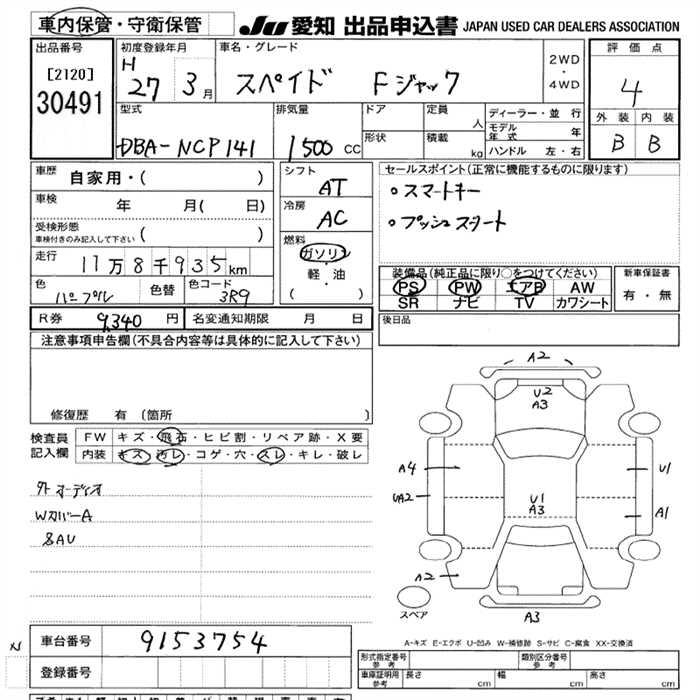 車内保管・守衛保管
JU 愛知 出品申込書 JAPAN USED CAR DEALERS ASSOCIATION
出品番号
[2120]
30491
初度登録年月
H 27 3月
車名・グレード
スペイド Fジャック
2WD
・
4WD
評価点
4
外装 内装
B B
型式
DBA-NCP141
排気量
1500 CC
ドア
形状
定員
人
積載
kg
ディーラー・並行
モデル年式 年
ハンドル 左・右
車歴
自家用・( )
車検
年 月( 日)
受検形態
車検付きのみ記入して下さい ( )
走行
11万8千935km
色
パープル
色替
色コード
3R9
シフト
AT
冷房
AC
燃料
ガソリン
・
軽・油
( )
セールスポイント(正常に機能するものに限ります)
○スマートキー
○プッシュスタート
装備品(純正品に限り○をつけてください)
PS PW エアB AW
SR ナビ TV カワシート
新車保証書
有・無
R券 9,340 円 名変通知期限 月 日
後日品
注意事項申告欄(不具合内容等は具体的に記入して下さい)
修復歴 有 (箇所 )
検査員
記入欄
FW キズ・飛石・ヒビ割・リペア跡・X要
内装 キズ・汚レ・コゲ・穴・スレ・キレ・破レ
外オーディオ
WカバーA
8AU
A2
U2
A3
A4
UA2
U1
U1
A3
A1
A2
スペア
A3
A-キズ E-エクボ U-凹み W-補修跡 S-サビ C-腐食 XX-交換済
車台番号 9153754
登録番号
形式指定番号
参考
類別区分番号
参考
車庫証明用
参考
長さ cm 幅 cm 高さ cm